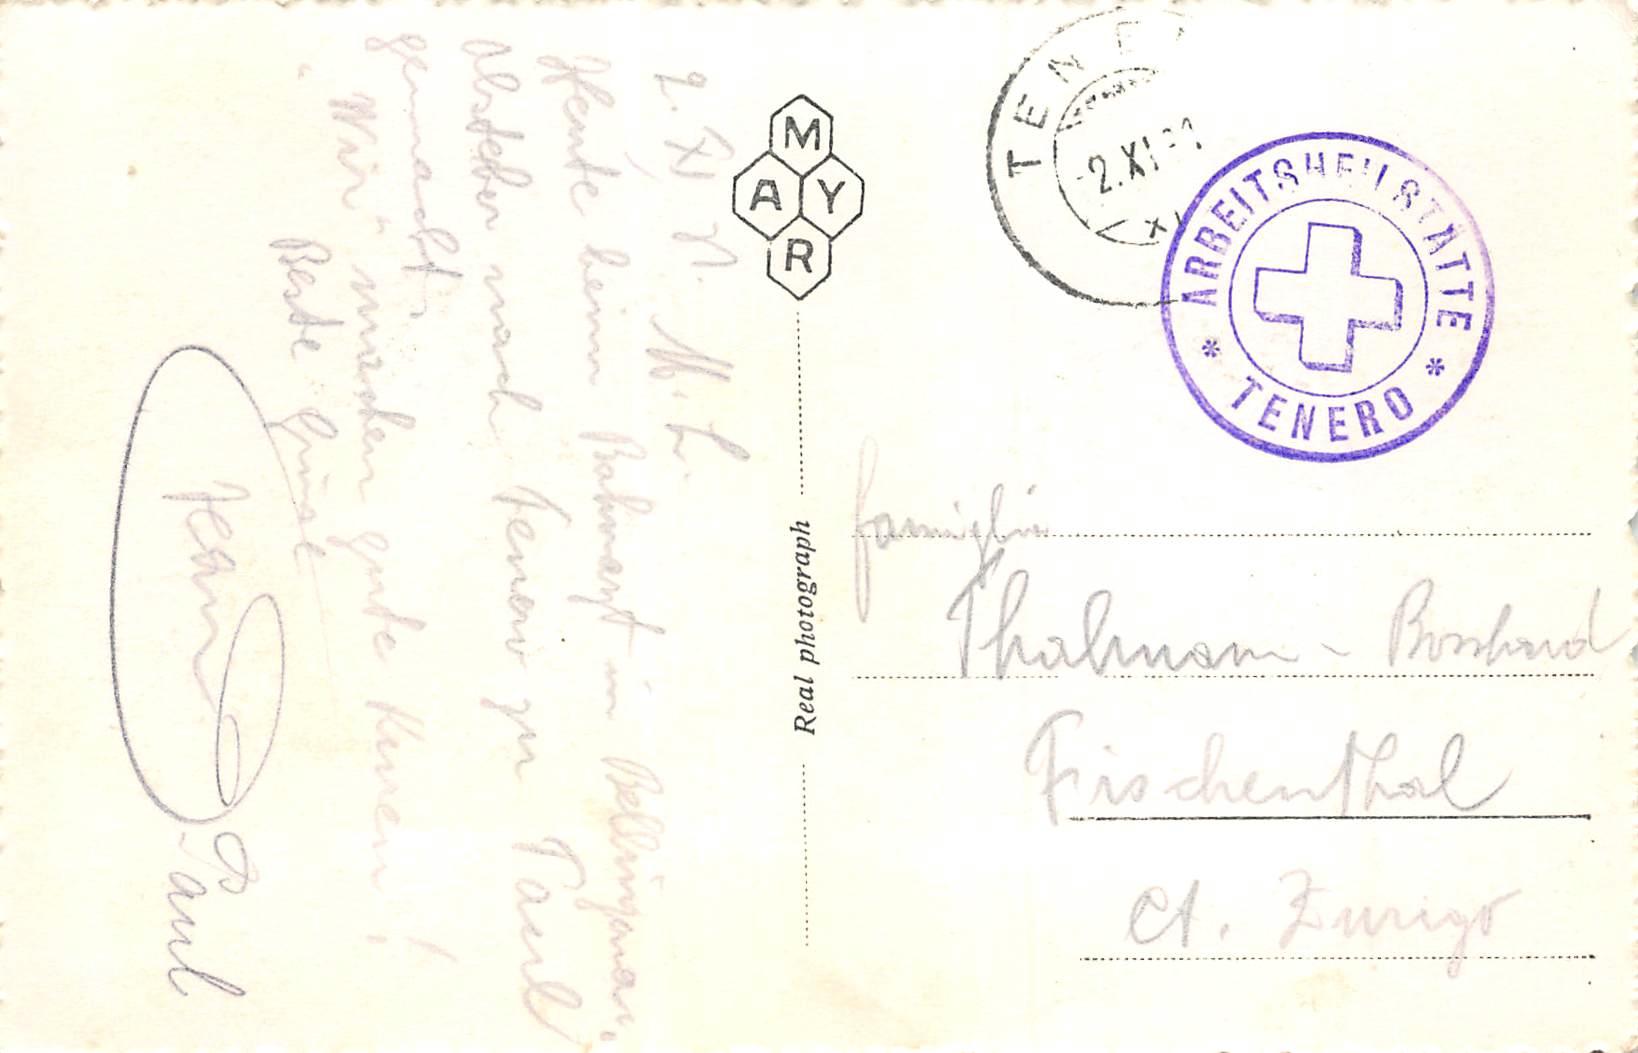 2. XI
M. L.
Heute beim Bahnarzt in Bellinzona.
Abstecher nach Tenero zu Paul
gemacht.
"Wir" machen gute Kuren!
Beste Grüsse
Paul
MAYR
Real photograph
TENE
2.XI
ARBEITSHEILSTÄTTE
* TENERO *
famiglia
Thalmann - Bosshard
Fischenthal
Ct. Zurigo